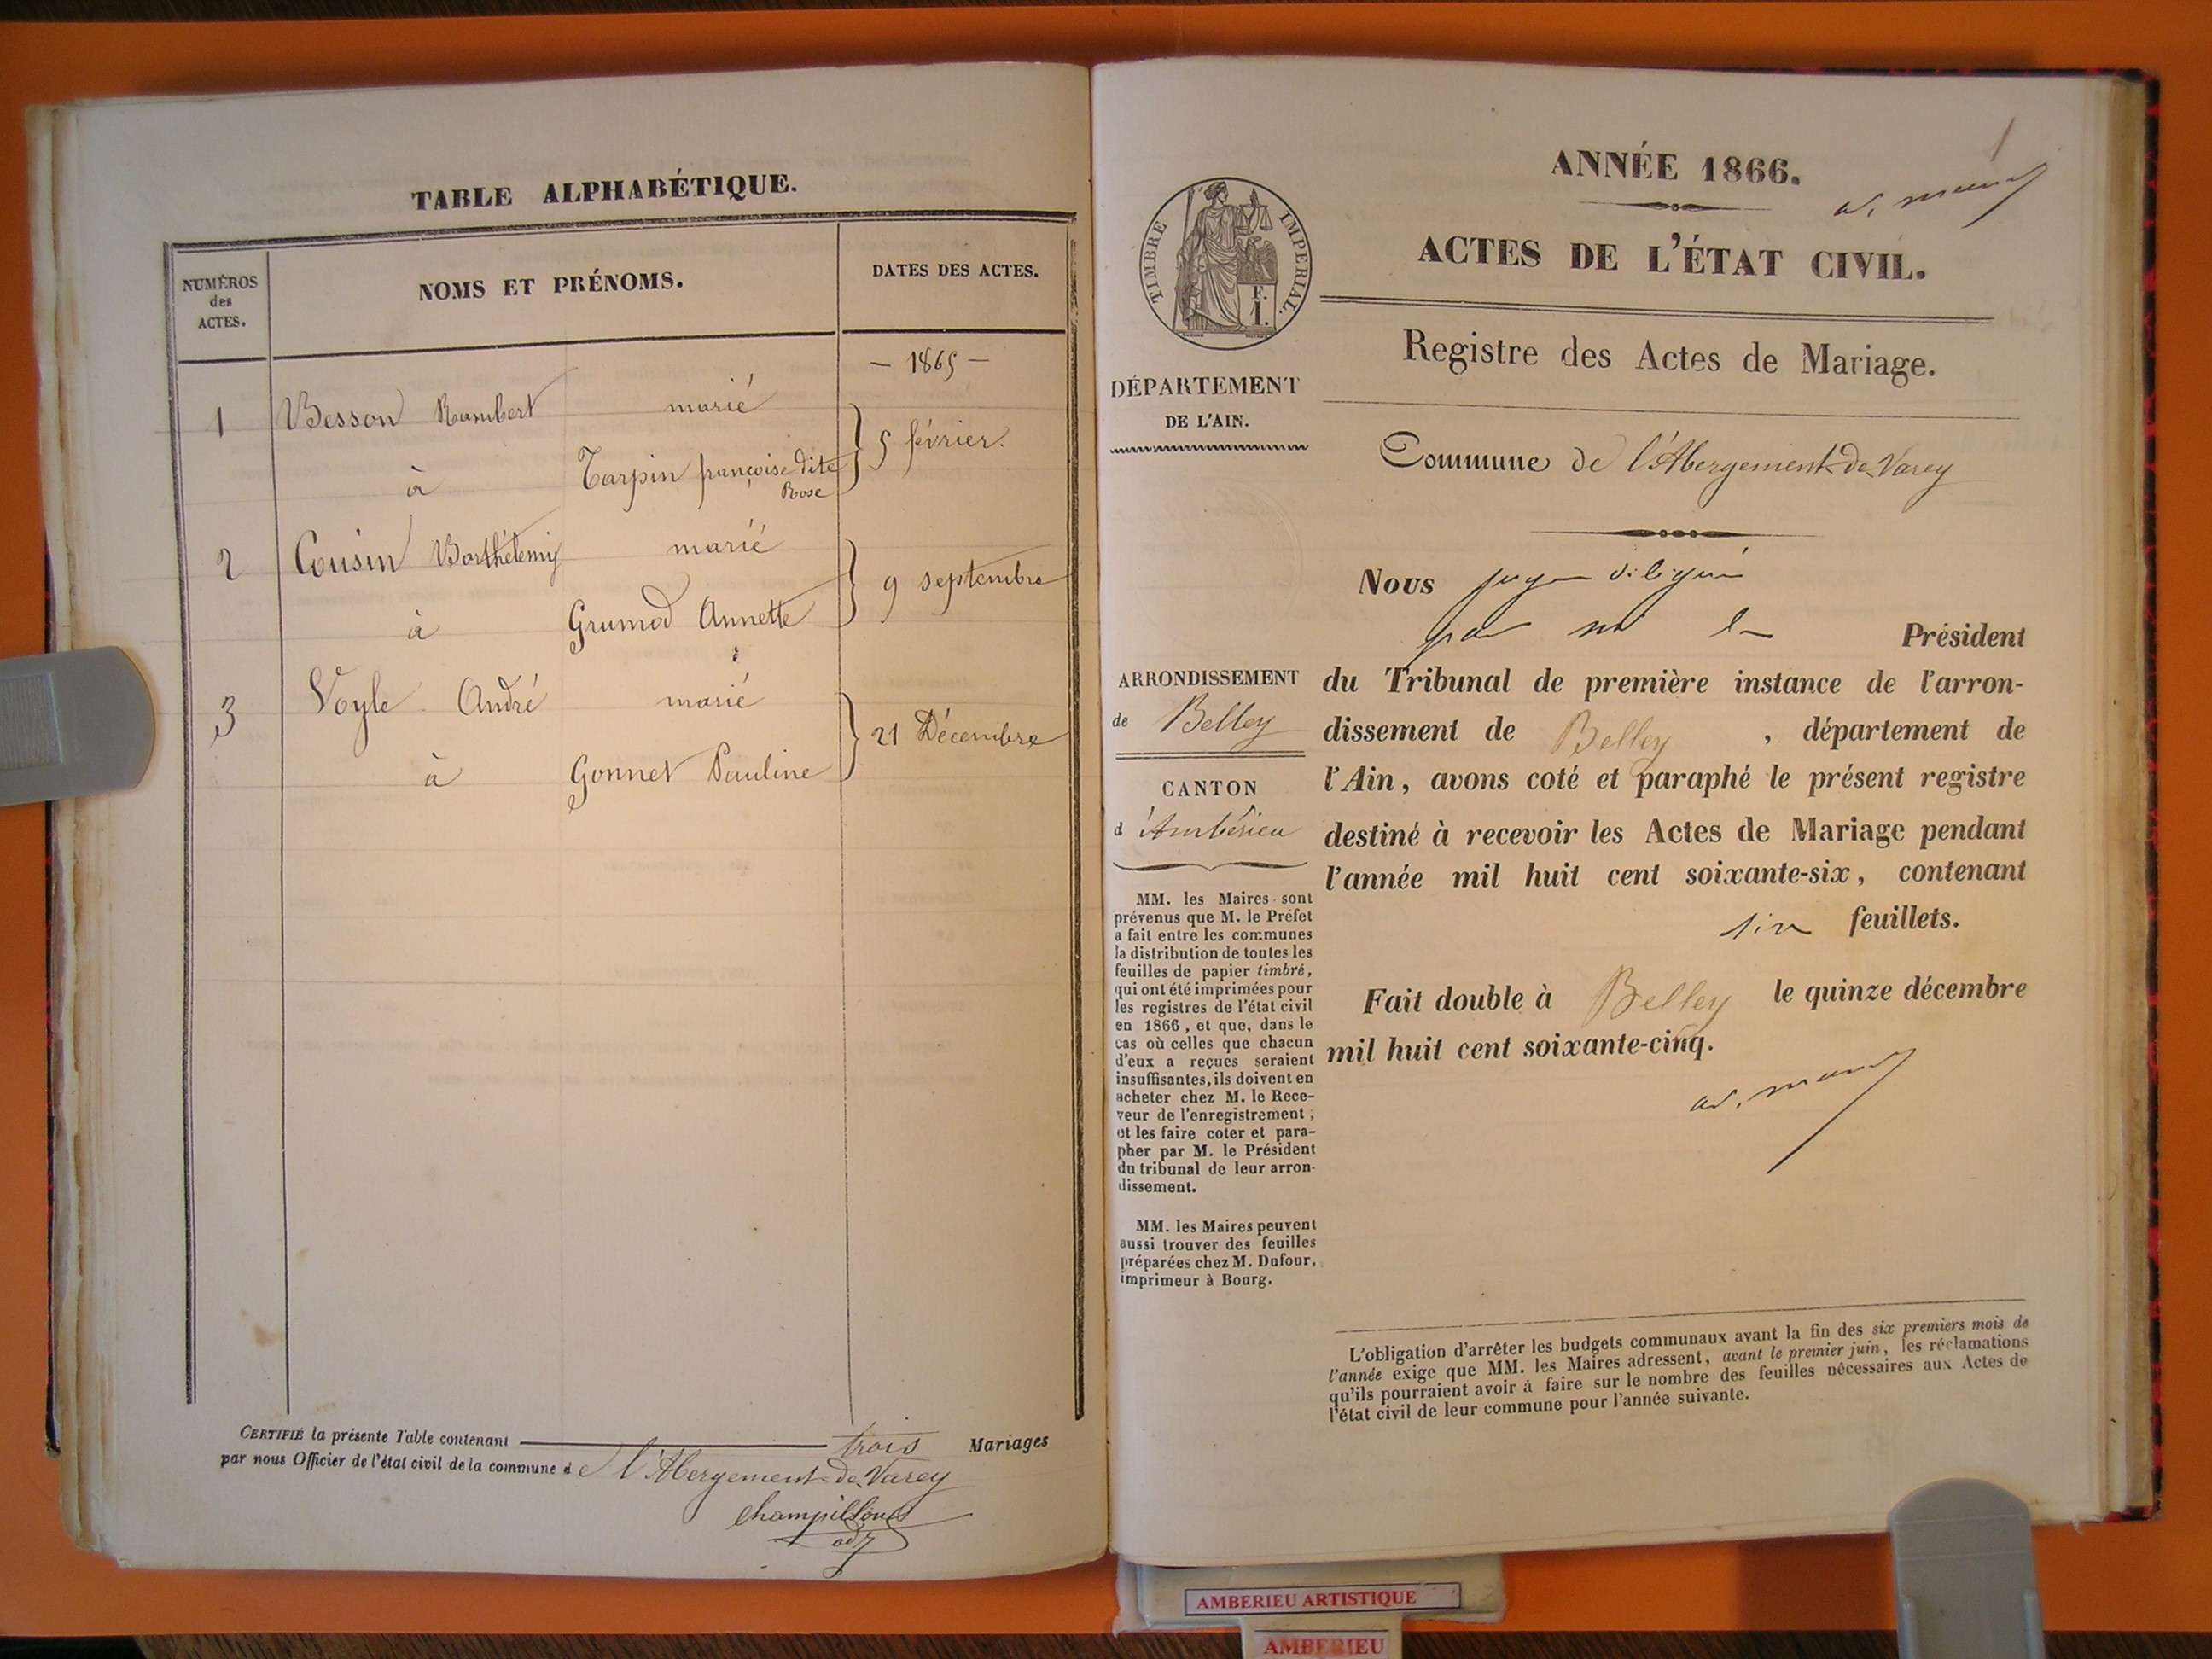 TABLE ALPHABÉTIQUE.
NUMÉROS
des
ACTES.
NOMS ET PRÉNOMS.
DATES DES ACTES.
— 1865 —
1 Besson Rambert marié
à Tarpin françoise dite
Rose
5 février.
2 Cousin Barthélemy marié
à Grumod Annette
9 septembre
3 Voyle André marié
à Gonnet Pauline
21 Décembre
CERTIFIÉ la présente Table contenant trois Mariages
par nous Officier de l'état civil de la commune de l'Abergement-de-Varey
Champillon
adj
1
ANNÉE 1866.
ACTES DE L'ÉTAT CIVIL.
TIMBRE IMPERIAL.
F.
1.
Registre des Actes de Mariage.
DÉPARTEMENT
DE L'AIN.
Commune de l'Abergement-de-Varey
ARRONDISSEMENT
de Belley
CANTON
d'Ambérieu
MM. les Maires sont
prévenus que M. le Préfet
a fait entre les communes
la distribution de toutes les
feuilles de papier timbré,
qui ont été imprimées pour
les registres de l'état civil
en 1866, et que, dans le
cas où celles que chacun
d'eux a reçues seraient
insuffisantes, ils doivent en
acheter chez M. le Rece-
veur de l'enregistrement,
et les faire coter et para-
pher par M. le Président
du tribunal de leur arron-
dissement.
MM. les Maires peuvent
aussi trouver des feuilles
préparées chez M. Dufour,
imprimeur à Bourg.
Nous juge délégué
par nous le Président
du Tribunal de première instance de l'arron-
dissement de Belley, département de
l'Ain, avons coté et paraphé le présent registre
destiné à recevoir les Actes de Mariage pendant
l'année mil huit cent soixante-six, contenant
six feuillets.
Fait double à Belley le quinze décembre
mil huit cent soixante-cinq.
L'obligation d'arrêter les budgets communaux avant la fin des six premiers mois de
l'année exige que MM. les Maires adressent, avant le premier juin, les réclamations
qu'ils pourraient avoir à faire sur le nombre des feuilles nécessaires aux Actes de
l'état civil de leur commune pour l'année suivante.
AMBERIEU ARTISTIQUE
AMBERIEU